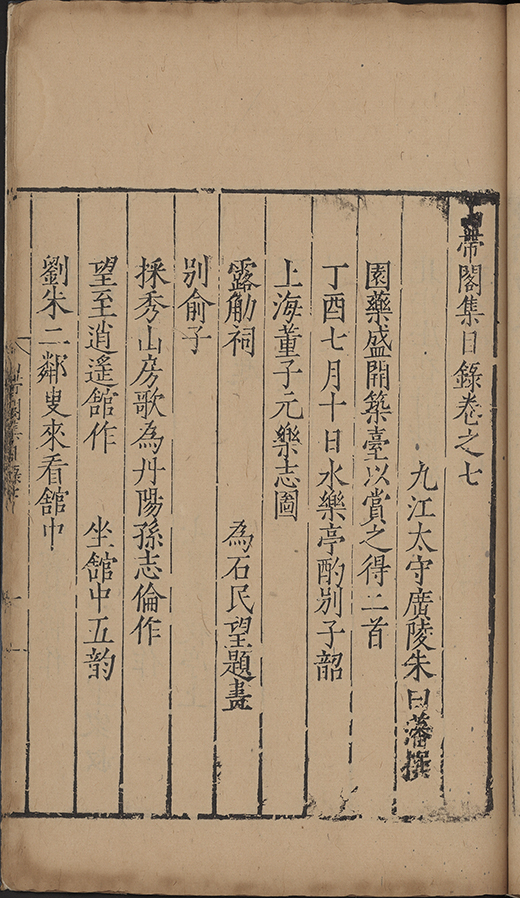 山帶閣集目錄卷之七
九江太守廣陵朱曰藩撰
園藥盛開築臺以賞之得二首
丁酉七月十日水樂亭酌別子韶
上海董子元樂志圖
露觔祠　為石民望題畫
別俞子
採秀山房歌為丹陽孫志倫作
望至逍遙舘作　坐舘中五韵
劉朱二鄰叟來看舘中